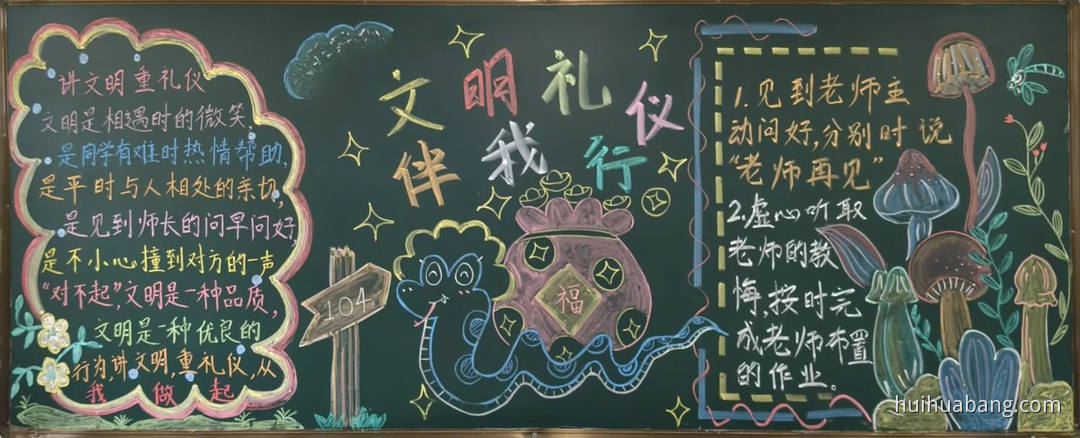 讲文明重礼仪
文明是相遇时的微笑,
是同学有难时热情帮助,
是平时与人相处的亲切,
是见到师长的问早问好
是不小心撞到对方的一声
“对不起”,文明是一种品质,
文明是一种优良的
行为,讲文明,重礼仪,从
我做起
文明礼仪
伴我行
104
福
1.见到老师主
动问好,分别时说
“老师再见”
2.虚心听取
老师的教
悔,按时完
成老师布置
的作业。
huihuabang.com